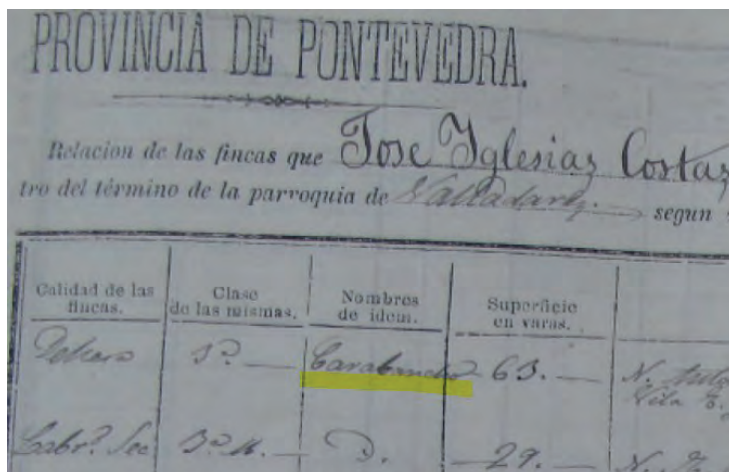 PROVINCIA DE PONTEVEDRA.
Relacion de las fincas que Jose Yglesias Costas
tro del término de la parroquia de Valladares. segun
Calidad de las fincas. Clase de las mismas. Nombres de idem. Superficie en varas.
3ª Carabancho 63. N.
Vila
Labrº Sec 3ª D. 29. N.